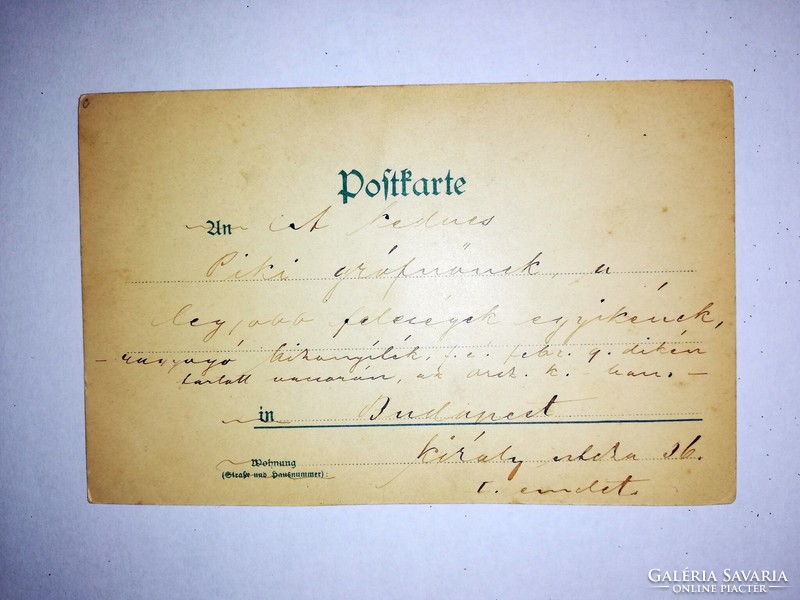 Postkarte
An A kedves
Piki grófnőnek, a
legjobb feleségek egyikének,
– ragyogó bizonyíték, f. é. febr. 9. dikén
tartott vacsorán, az orsz. k.-ban. –
in Budapest
Wohnung Király utcza 36.
(Straße und Hausnummer): I. emelet.
GALÉRIA SAVARIA
ONLINE PIACTÉR